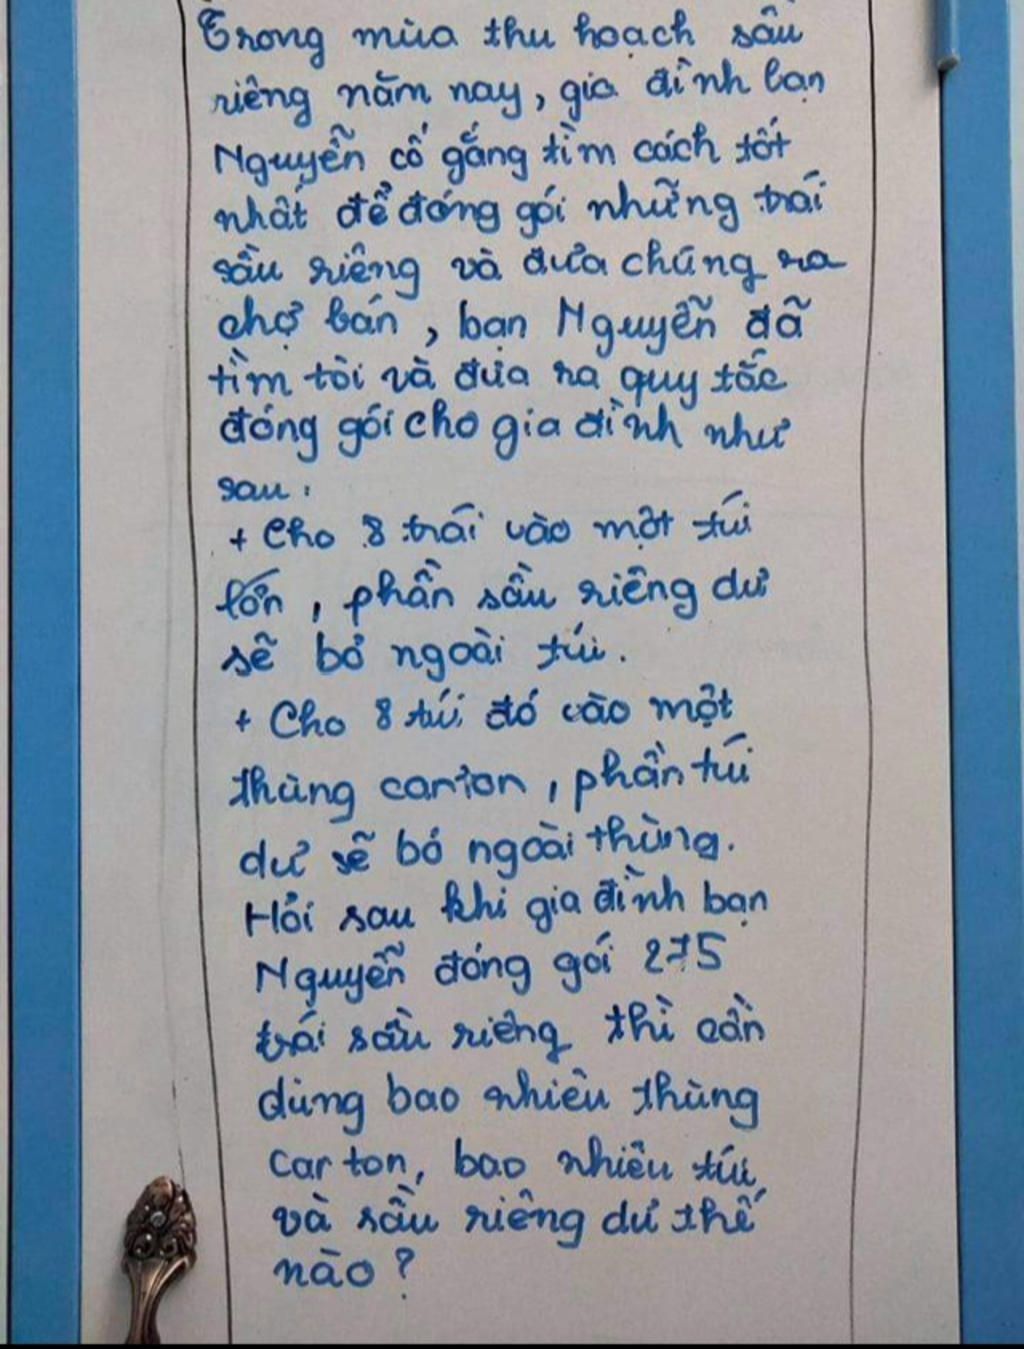 Trong mùa thu hoạch sầu
riêng năm nay, gia đình bạn
Nguyễn cố gắng tìm cách tốt
nhất để đóng gói những trái
sầu riêng và đưa chúng ra
chợ bán, bạn Nguyễn đã
tìm tòi và đưa ra quy tắc
đóng gói cho gia đình như
sau:
+ Cho 8 trái vào một túi
lớn, phần sầu riêng dư
sẽ bỏ ngoài túi.
+ Cho 8 túi đó vào một
thùng carton, phần túi
dư sẽ bỏ ngoài thùng.
Hỏi sau khi gia đình bạn
Nguyễn đóng gói 275
trái sầu riêng thì cần
dùng bao nhiêu thùng
carton, bao nhiêu túi
và sầu riêng dư thế
nào?